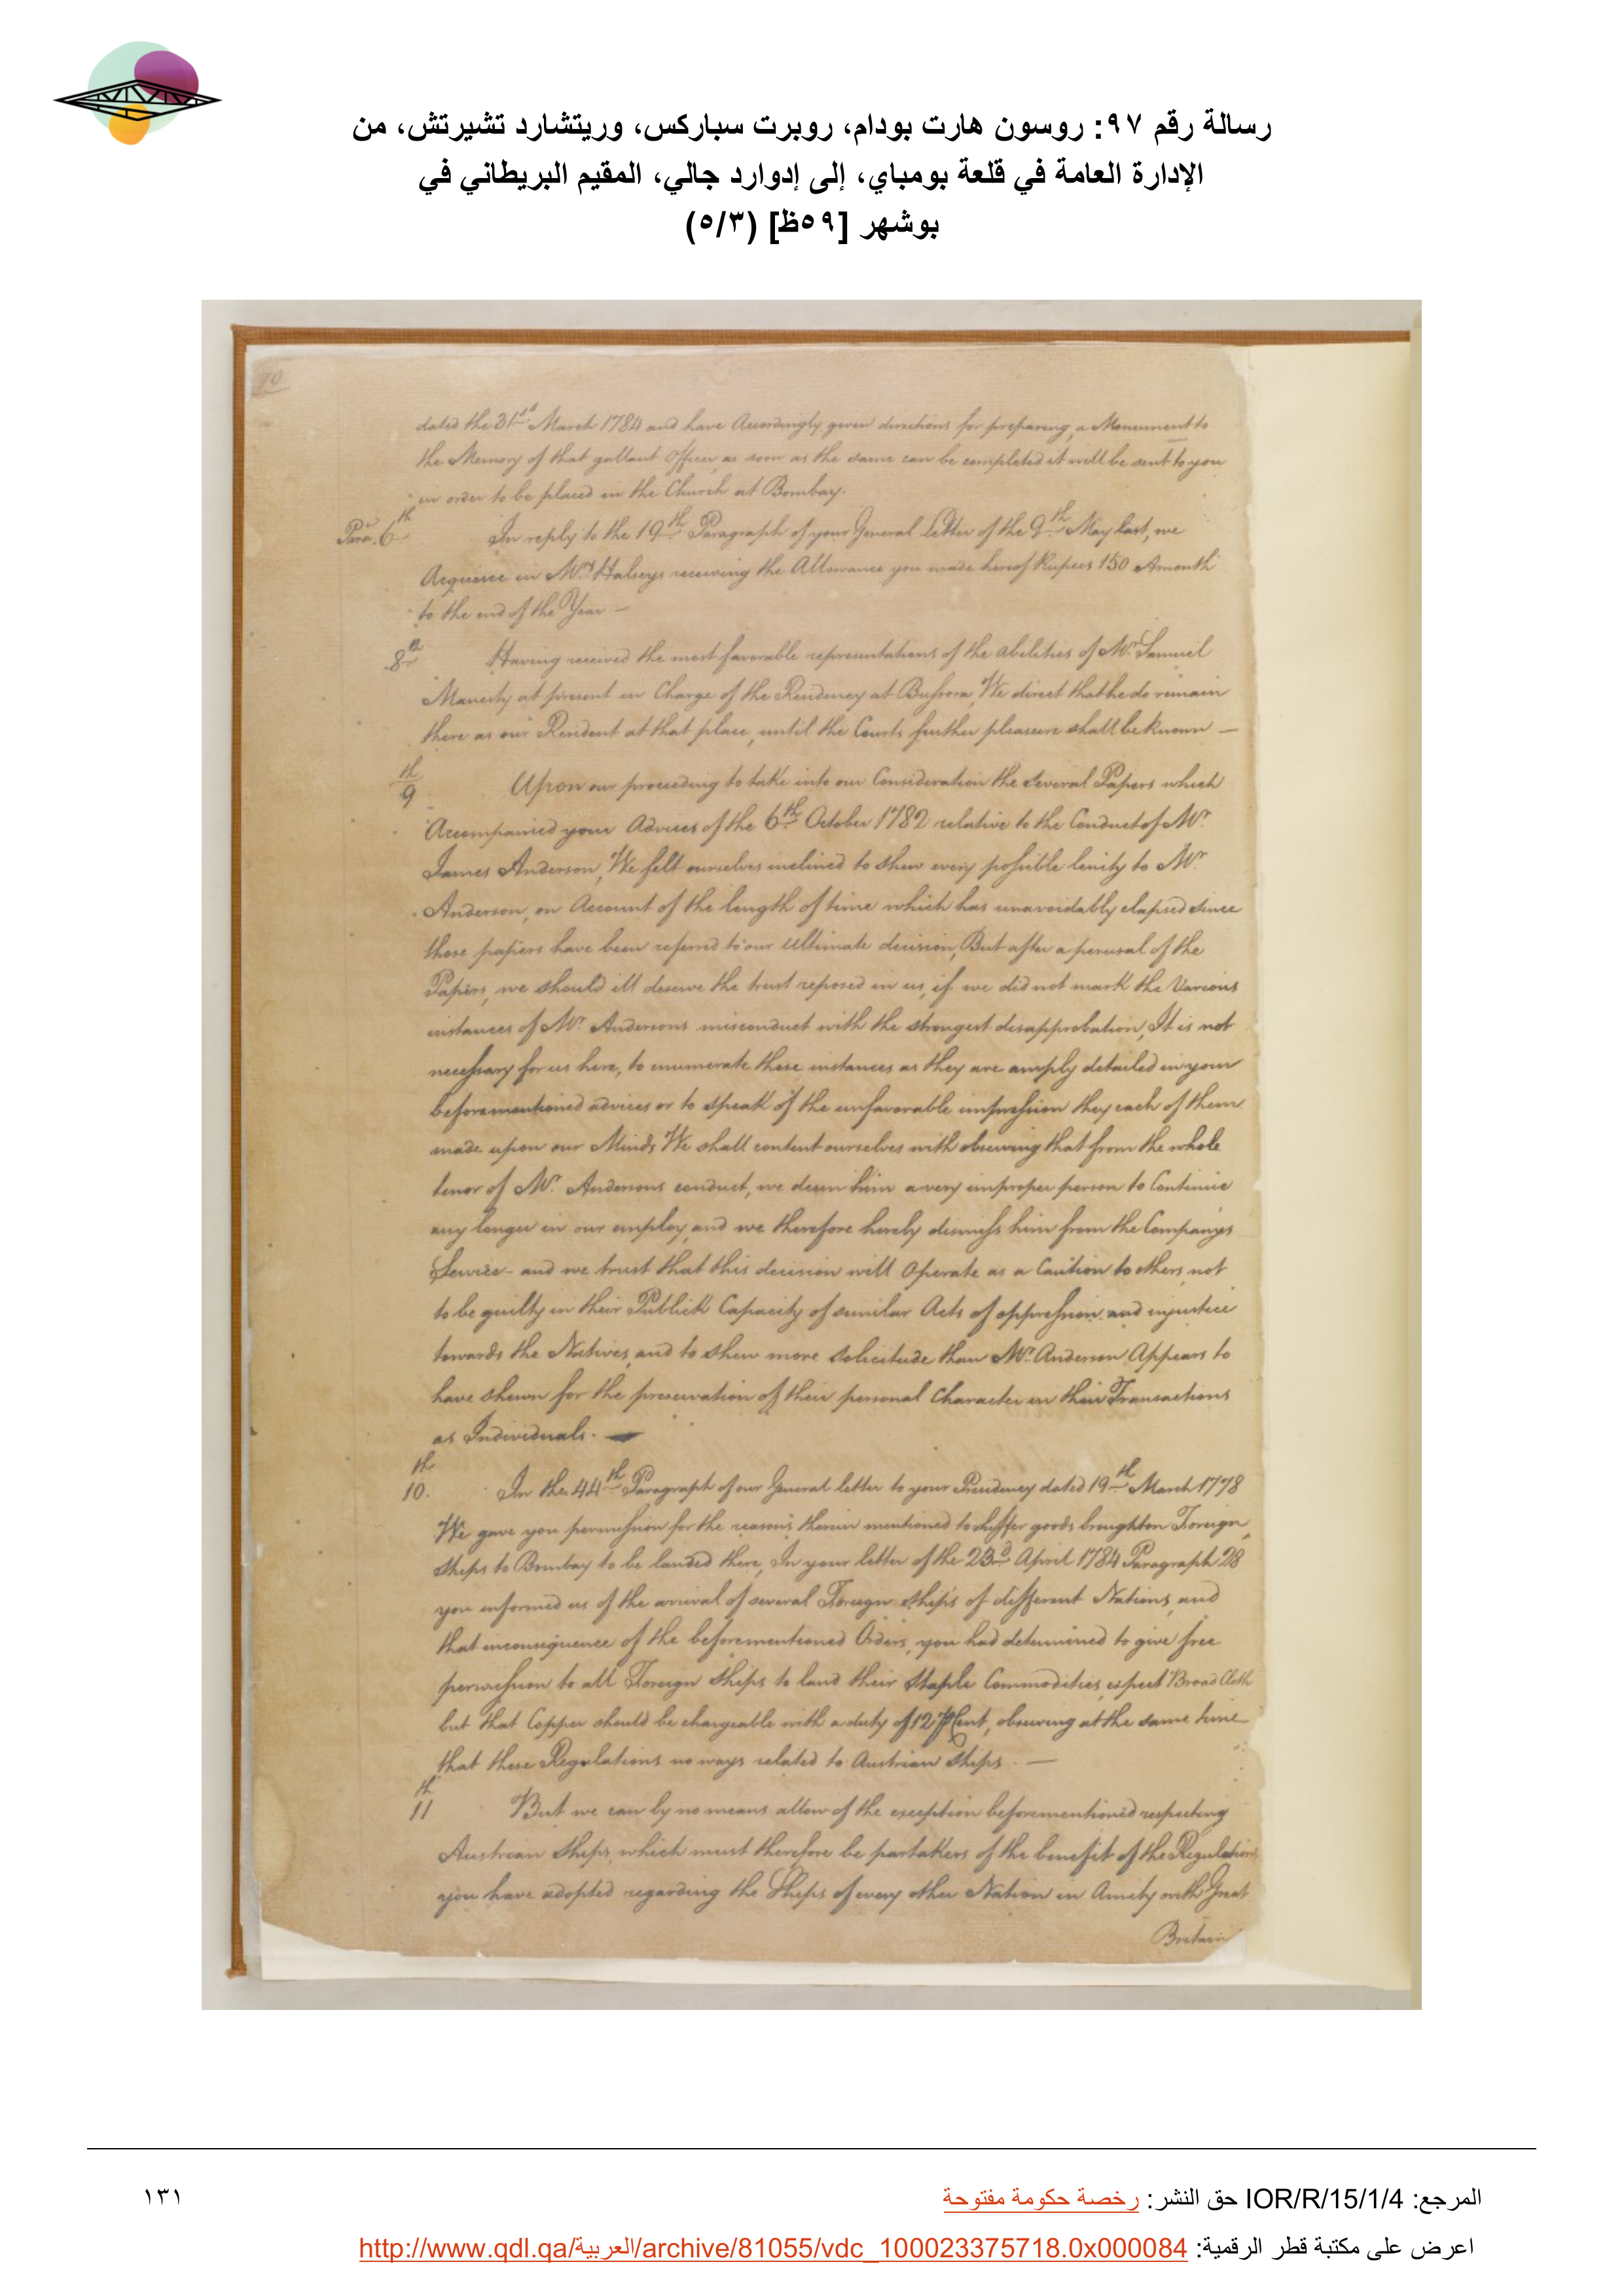 رسالة رقم ٩٧: روسون هارت بودام، روبرت سباركس، وريتشارد تشيرتش، من
الإدارة العامة في قلعة بومباي، إلى إدوارد جالي، المقيم البريطاني في
بوشهر [٥٩ظ] (٥/٣)
70
dated the 31st March 1784 and have Accordingly given directions for preparing a Monument to
the Memory of that gallant Officer, as soon as the same can be completed it will be sent to you
in order to be placed in the Church at Bombay.
Para. 6th In reply to the 19th Paragraph of your General Letter of the 9th May last, we
Acquiesce in Mrs Halseys receiving the Allowance you made her of Rupees 150 Amonth
to the end of the Year —
8th Having received the most favorable representations of the abilities of Mr. Samuel
Manesty at present in Charge of the Residency at Bussora, We direct that he do remain
there as our Resident at that place, until the Courts further pleasure shall be known —
9th Upon our proceeding to take into our Consideration the several Papers which
Accompanied your Advices of the 6th October 1782 relative to the Conduct of Mr.
James Anderson, We felt ourselves inclined to shew every possible lenity to Mr.
Anderson, on Account of the length of time which has unavoidably elapsed since
those papers have been referred to our Ultimate decision, But after a perusal of the
Papers, we should ill deserve the trust reposed in us, if we did not mark the Various
instances of Mr. Andersons misconduct with the strongest disapprobation, It is not
necessary for us here, to enumerate these instances as they are amply detailed in your
beforementioned advices or to speak of the unfavorable impression they each of them
made upon our Minds We shall content ourselves with observing that from the whole
tenor of Mr. Andersons conduct, we deem him a very improper person to Continue
any longer in our employ, and we therefore hereby dismiss him from the Companys
Service - and we trust that this decision will Operate as a Caution to others, not
to be guilty in their Publick Capacity of similar Acts of oppression and injustice
towards the Natives, and to shew more solicitude than Mr. Anderson Appears to
have shewn for the preservation of their personal Character in their Transactions
as Individuals. —
10th. In the 44th Paragraph of our General letter to your Presidency dated 19th March 1778
We gave you permission for the reasons therein mentioned to suffer goods brought on Foreign
Ships to Bombay to be landed there, In your letter of the 23d April 1784 Paragraph 28
you informed us of the arrival of several Foreign ships of different Nations, and
that inconsequence of the beforementioned Orders, you had determined to give free
permission to all Foreign Ships to land their Staple Commodities, expect Broad Cloth
but that Copper should be chargeable with a duty of 12 P Cent, observing at the same time
that these Regulations no ways related to Austrian Ships. —
11th But we can by no means allow of the exception beforementioned respecting
Austrian Ships, which must therefore be partakers of the benefit of the Regulations
you have adopted regarding the Ships of every other Nation in Amity with Great
Britain
المرجع: IOR/R/15/1/4 حق النشر: رخصة حكومة مفتوحة
١٣١
اعرض على مكتبة قطر الرقمية: http://www.qdl.qa/العربية/archive/81055/vdc_100023375718.0x000084